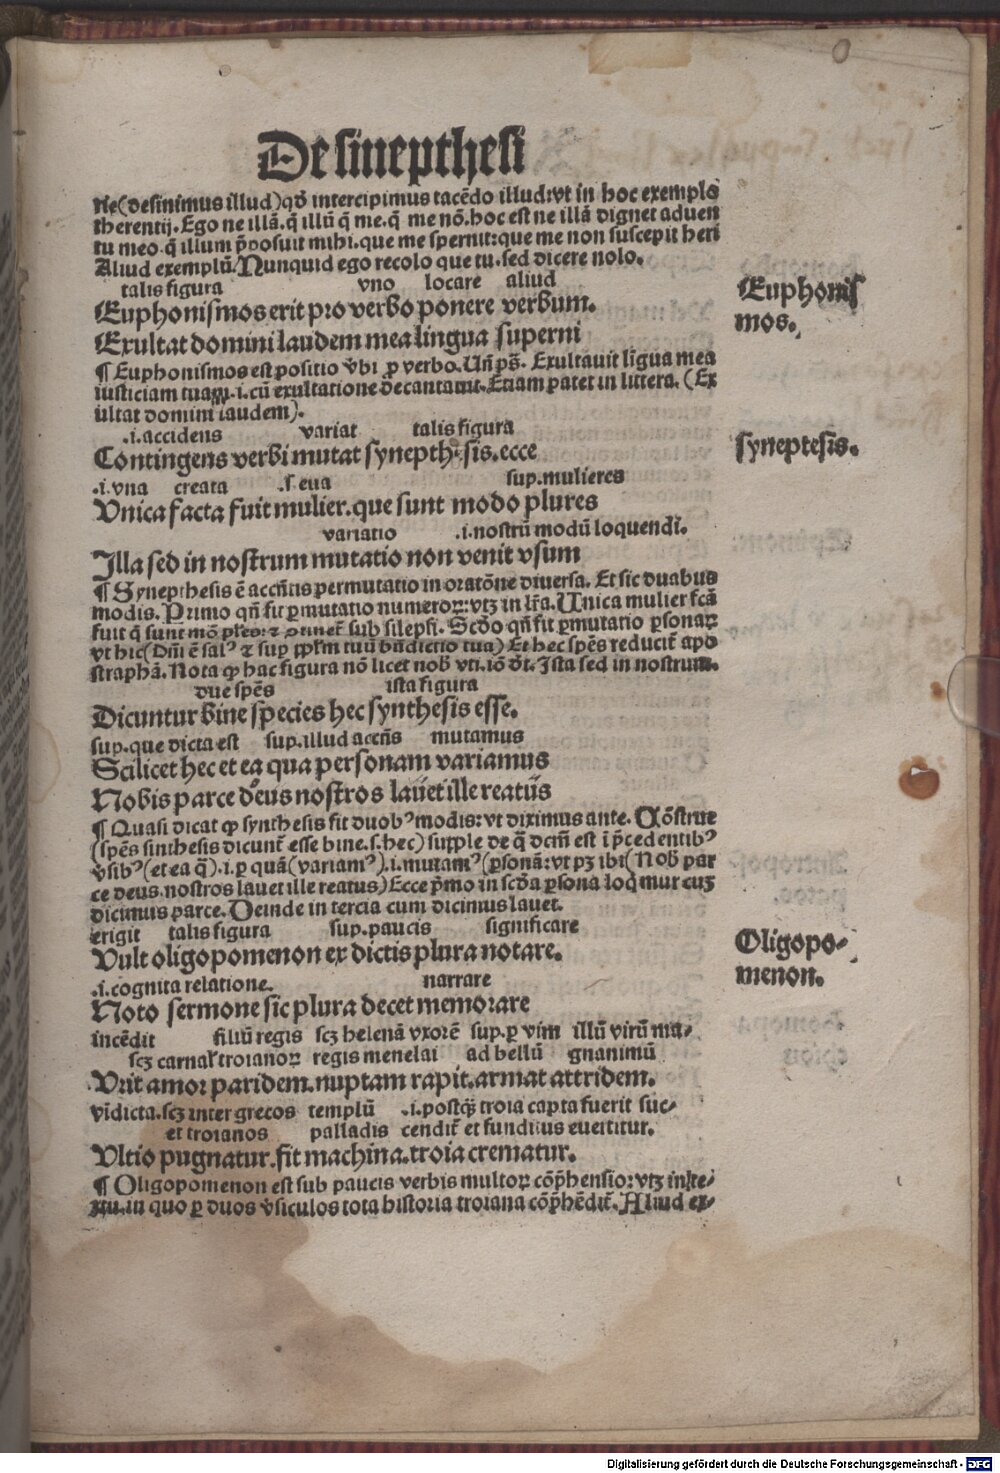 De sinepthesi
rie(desinimus illud)qđ intercipimus tacēdo illud:vt in hoc exemplo
therentij. Ego ne illā. q̄ illū q̄ me. q̄ me nō. hoc est ne illā dignet aduen
tu meo. q̄ illum p̄posuit mihi. que me spernit: que me non suscepit heri
Aliud exemplū. Nunquid ego recolo que tu. sed dicere nolo.
talis figura vno locare aliud
Euphonismos erit pro verbo ponere verbum.
Euphonis
mos.
Exultat domini laudem mea lingua superni
¶ Euphonismos est positio v̄bi ꝓ verbo. Uñ ps̄. Exultauit līgua mea
iusticiam tuam .i. cū exultatione decantauit. Etiam patet in littera. (Ex
ultat domini laudem).
.i. accidens variat talis figura
Contingens verbi mutat synepthesis. ecce
syneptesis.
.i. vna creata .s. eua sup. mulieres
Vnica facta fuit mulier. que sunt modo plures
variatio .i. nostrū modū loquendi.
Illa sed in nostrum mutatio non venit vsum
¶ Synepthesis ē accñtis permutatio in oratōne diuersa. Et sic duobus
modis. Primo qñ fit ꝑmutatio numeroꝝ: vtꝫ in lr̄a. Unica mulier fcā
fuit q̄ sunt mō pl̄es: ⁊ ꝑtinet sub silepsi. Scd̄o qñ fit ꝑmutatio ꝑsonaꝝ
vt hic(Dn̄i ē salꝰ ⁊ suꝑ pp̄lm tuū bn̄dictio tua) Et hec spēs reducit̄ apo
straphā. Nota ꝙ hac figura nō licet nob̄ vti. iō d̄t. Ista sed in nostrum.
due spēs ista figura
Dicuntur bine species hec synthesis esse.
sup. que dicta est sup. illud accñs mutamus
Scilicet hec et ea qua personam variamus
Nobis parce deus nostros lauet ille reatus
¶ Quasi dicat ꝙ synthesis fit duobꝰ modis: vt diximus ante. Cōstrue
(spēs sinthesis dicunt̄ esse bine. s. hec) supple de q̄ dcm̄ est ī p̄cedentibꝰ
v̄sibꝰ(et ea q̄) .i. ꝑ quā(variamꝰ) .i. mutamꝰ(ꝑsonā: vt pꝫ ibi(Nob̄ par
ce deus nostros lauet ille reatus) Ecce p̄mo in scd̄a ꝑsona loq̄mur cuꝫ
dicimus parce. Deinde in tercia cum dicimus lauet.
erigit talis figura sup. paucis significare
Vult oligopomenon ex dictis plura notare.
Oligopo-
menon.
.i. cognita relatione. narrare
Noto sermone sic plura decet memorare
incēdit filiū regis scꝫ helenā vxorē sup. ꝑ vim illū virū ma-
scꝫ carnal̄ troianoꝝ regis menelai ad bellū gnanimū
Vrit amor paridem. nuptam rapit. armat attridem.
vīdicta. scꝫ inter grecos templū .i. postq̄ꝫ troia capta fuerit suc-
et troianos palladis cendit̄ et funditus euertitur.
Vltio pugnatur. fit machina. troia crematur.
¶ Oligopomenon est sub paucis verbis multoꝝ cōp̄hensio: vtꝫ in te-
xtu. in quo ꝑ duos v̄siculos tota historia troiana cōp̄hēdit̄. Aliud ex-
Digitalisierung gefördert durch die Deutsche Forschungsgemeinschaft - DFG